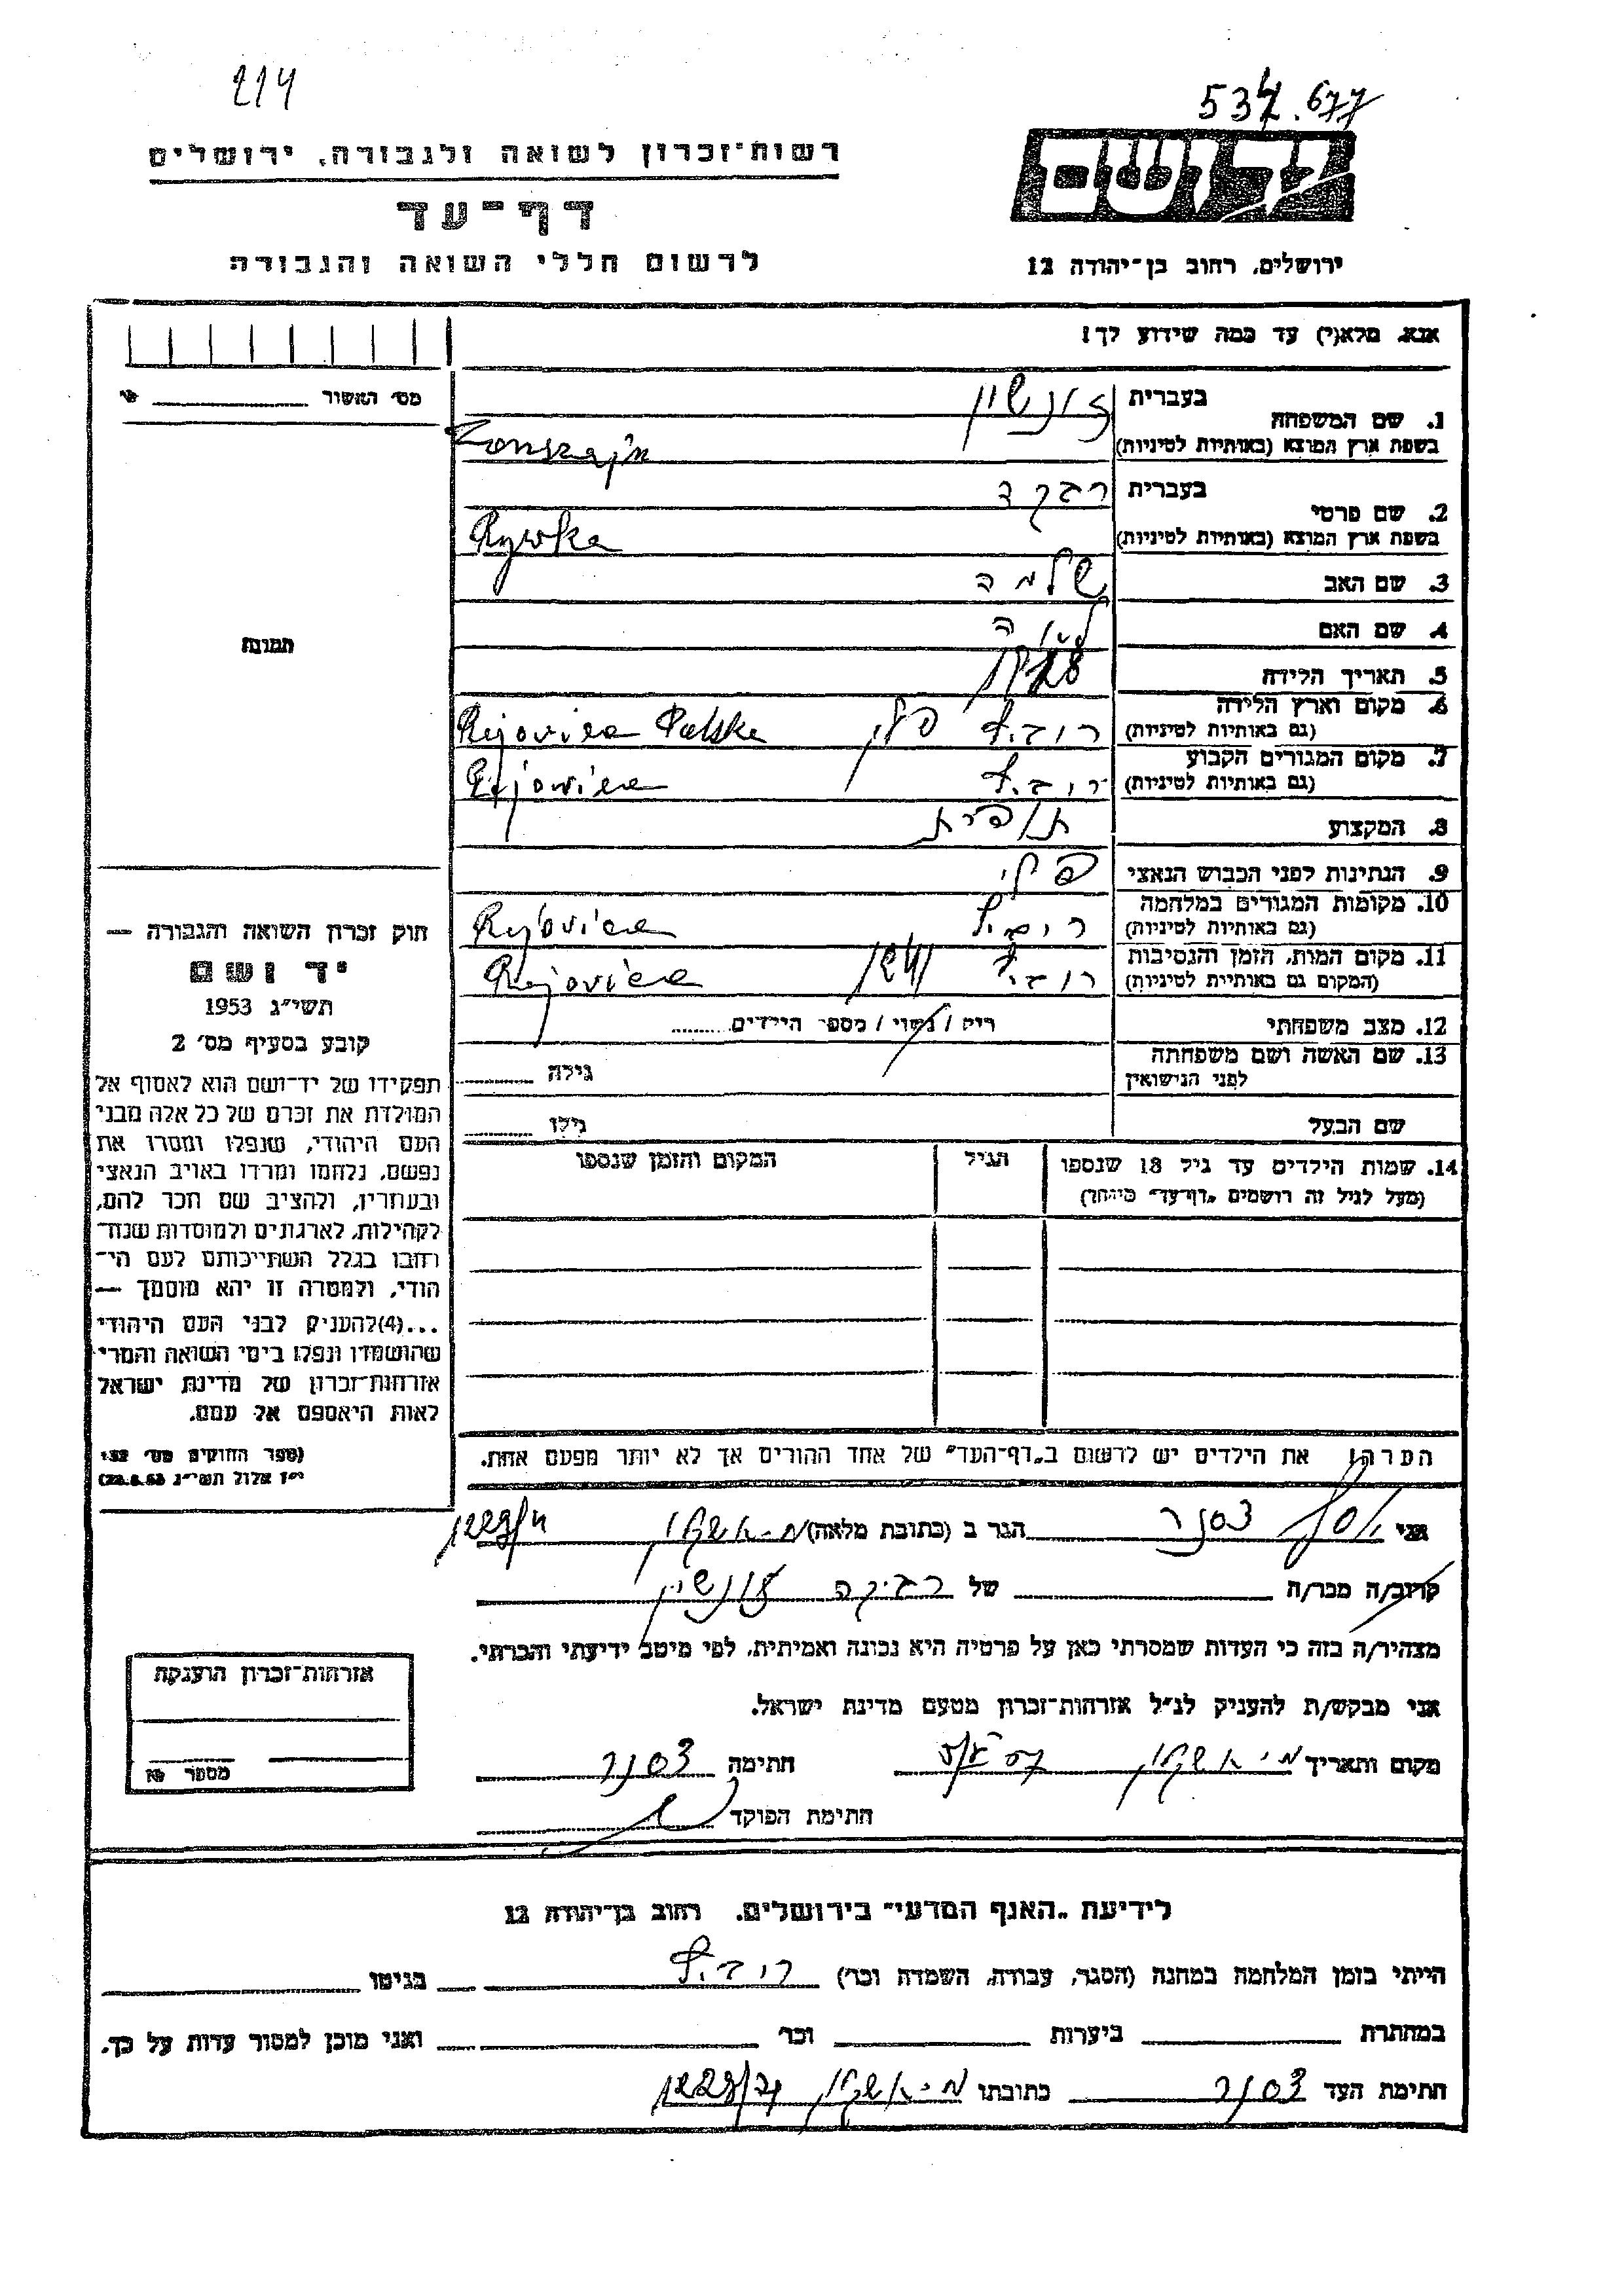 214
534.677
רשות־זכרון לשואה ולגבורה, ירושלים
דף־עד
לרשום חללי השואה והגבורה
יד ושם
ירושלים, רחוב בן־יהודה 12
אנא, מלא(י) עד כמה שידוע לך!
מס׳ האשור
1. שם המשפחה
בעברית זונשיין
בשפת ארץ המוצא (באותיות לטיניות) Zonszajn
2. שם פרטי
בעברית רבקה
בשפת ארץ המוצא (באותיות לטיניות) Rywka
3. שם האב שלמה
4. שם האם
5. תאריך הלידה
6. מקום וארץ הלידה
(גם באותיות לטיניות) Rejoviec Polska
7. מקום המגורים הקבוע
(גם באותיות לטיניות) Rejoviec
8. המקצוע תופרת
9. הנתינות לפני הכבוש הנאצי פולני
10. מקומות המגורים במלחמה
(גם באותיות לטיניות) Rejoviec
11. מקום המות, הזמן והנסיבות
(המקום גם באותיות לטיניות) 1941 Rejoviec
12. מצב משפחתי רוק / נשוי / מספר הילדים
13. שם האשה ושם משפחתה
לפני הנישואין גילה
שם הבעל גילו
14. שמות הילדים עד גיל 18 שנספו הגיל המקום והזמן שנספו
(מעל לגיל זה רושמים „דף־עד״ מיוחד)
תמונה
חוק זכרון השואה והגבורה —
יד ושם
תשי״ג 1953
קובע בסעיף מס׳ 2
תפקידו של יד־ושם הוא לאסוף אל
המולדת את זכרם של כל אלה מבני
העם היהודי, שנפלו ומסרו את
נפשם, נלחמו ומרדו באויב הנאצי
ובעוזריו, ולהציב שם וזכר להם,
לקהילות, לארגונים ולמוסדות שנח־
רחבו בגלל השתייכותם לעם הי־
הודי, ולמטרה זו יהא מוסמך —
...(4) להעניק לבני העם היהודי
שהושמדו ונפלו בימי השואה והמרי
אזרחות־זכרון של מדינת ישראל
לאות היאספם אל עמם.
(ספר החוקים מס׳ 132
י״ז אלול תשי״ג 28.8.53)
הערה: את הילדים יש לרשום ב„דף־העד״ של אחד ההורים אך לא יותר מפעם אחת.
אני הגר ב (כתובת מלאה)
קרוב/ה מכר/ה של רביקה זונשיין
מצהיר/ה בזה כי העדות שמסרתי כאן על פרטיה היא נכונה ואמיתית, לפי מיטב ידיעתי והכרתי.
אני מבקש/ת להעניק לנ״ל אזרחות־זכרון מטעם מדינת ישראל.
מקום ותאריך חתימה
חתימת הפוקד
אזרחות־זכרון הוענקה
מספר
לידיעת „האגף המדעי״ בירושלים, רחוב בן־יהודה 12
הייתי בזמן המלחמה במחנה (הסגר, עבודה, השמדה וכו׳) בגיטו
במחתרת ביערות וכו׳ ואני מוכן למסור עדות על כך.
חתימת העד כתובתו